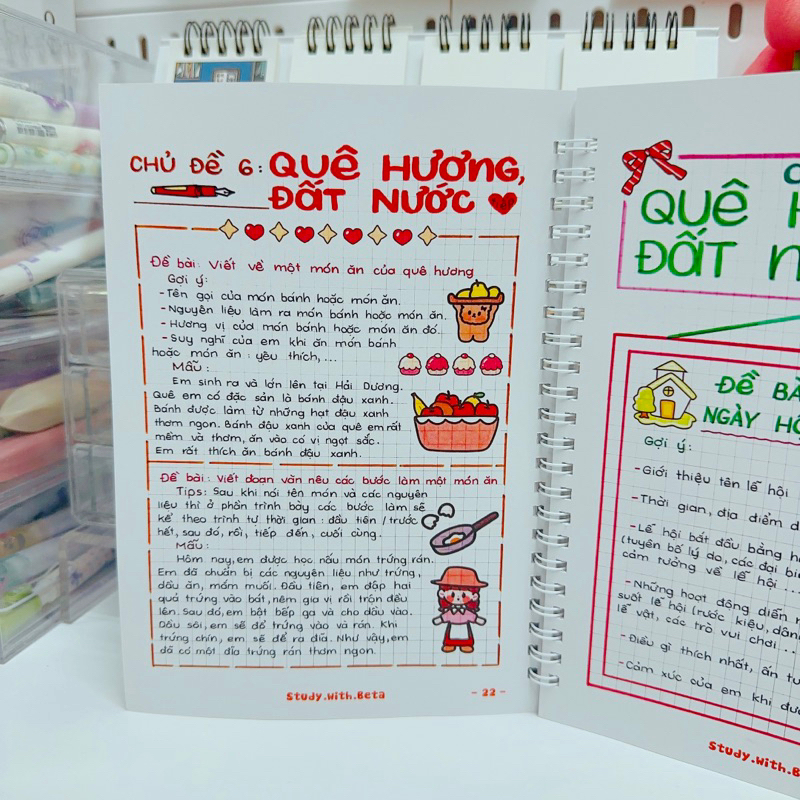 CHỦ ĐỀ 6: QUÊ HƯƠNG,
ĐẤT NƯỚC
Đề bài: Viết về một món ăn của quê hương
Gợi ý:
- Tên gọi của món bánh hoặc món ăn.
- Nguyên liệu làm ra món bánh hoặc món ăn.
- Hương vị của món bánh hoặc món ăn đó.
- Suy nghĩ của em khi ăn món bánh
hoặc món ăn: yêu thích,...
Mẫu:
Em sinh ra và lớn lên tại Hải Dương.
Quê em có đặc sản là bánh đậu xanh.
Bánh được làm từ những hạt đậu xanh
thơm ngon. Bánh đậu xanh của quê em rất
mềm và thơm, ăn vào có vị ngọt sắc.
Em rất thích ăn bánh đậu xanh.
Đề bài: Viết đoạn văn nêu các bước làm một món ăn
Tips: Sau khi nói tên món và các nguyên
liệu thì ở phần trình bày các bước làm sẽ
kể theo trình tự thời gian: đầu tiên/trước
hết, sau đó, rồi, tiếp đến, cuối cùng.
Mẫu:
Hôm nay, em được học nấu món trứng rán.
Em đã chuẩn bị các nguyên liệu như trứng,
dầu ăn, mắm muối. Đầu tiên, em đập hai
quả trứng vào bát, nêm gia vị rồi trộn đều
lên. Sau đó, em bật bếp ga và cho dầu vào.
Dầu sôi, em sẽ đổ trứng vào và rán. Khi
trứng chín, em sẽ để ra đĩa. Như vậy, em
đã có một đĩa trứng rán thơm ngon.
Study.With.Beta
- 22 -
QUÊ
ĐẤT
ĐỀ
NGÀY
Gợi ý:
- Giới thiệu tên lễ hội
- Thời gian, địa điểm
- Lễ hội bắt đầu bằng
(tuyên bố lý do, các đại
cảm tưởng về lễ hội ...
- Những hoạt động diễn
suốt lễ hội (rước kiệu, dâng
lễ vật, các trò vui chơi...
- Điều gì thích nhất, ấn
- Cảm xúc của em khi
Study.With.